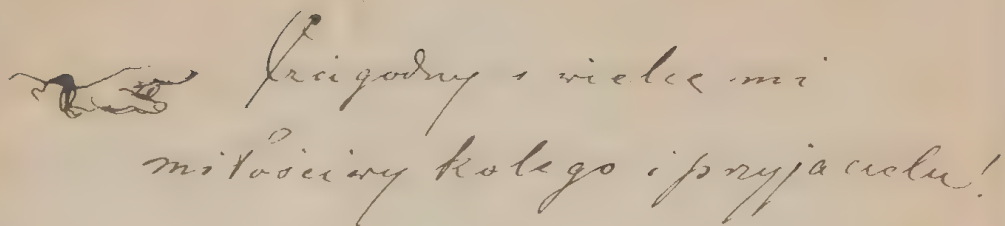 Czcigodny i wielce mi
miłościwy kolego i przyjacielu!